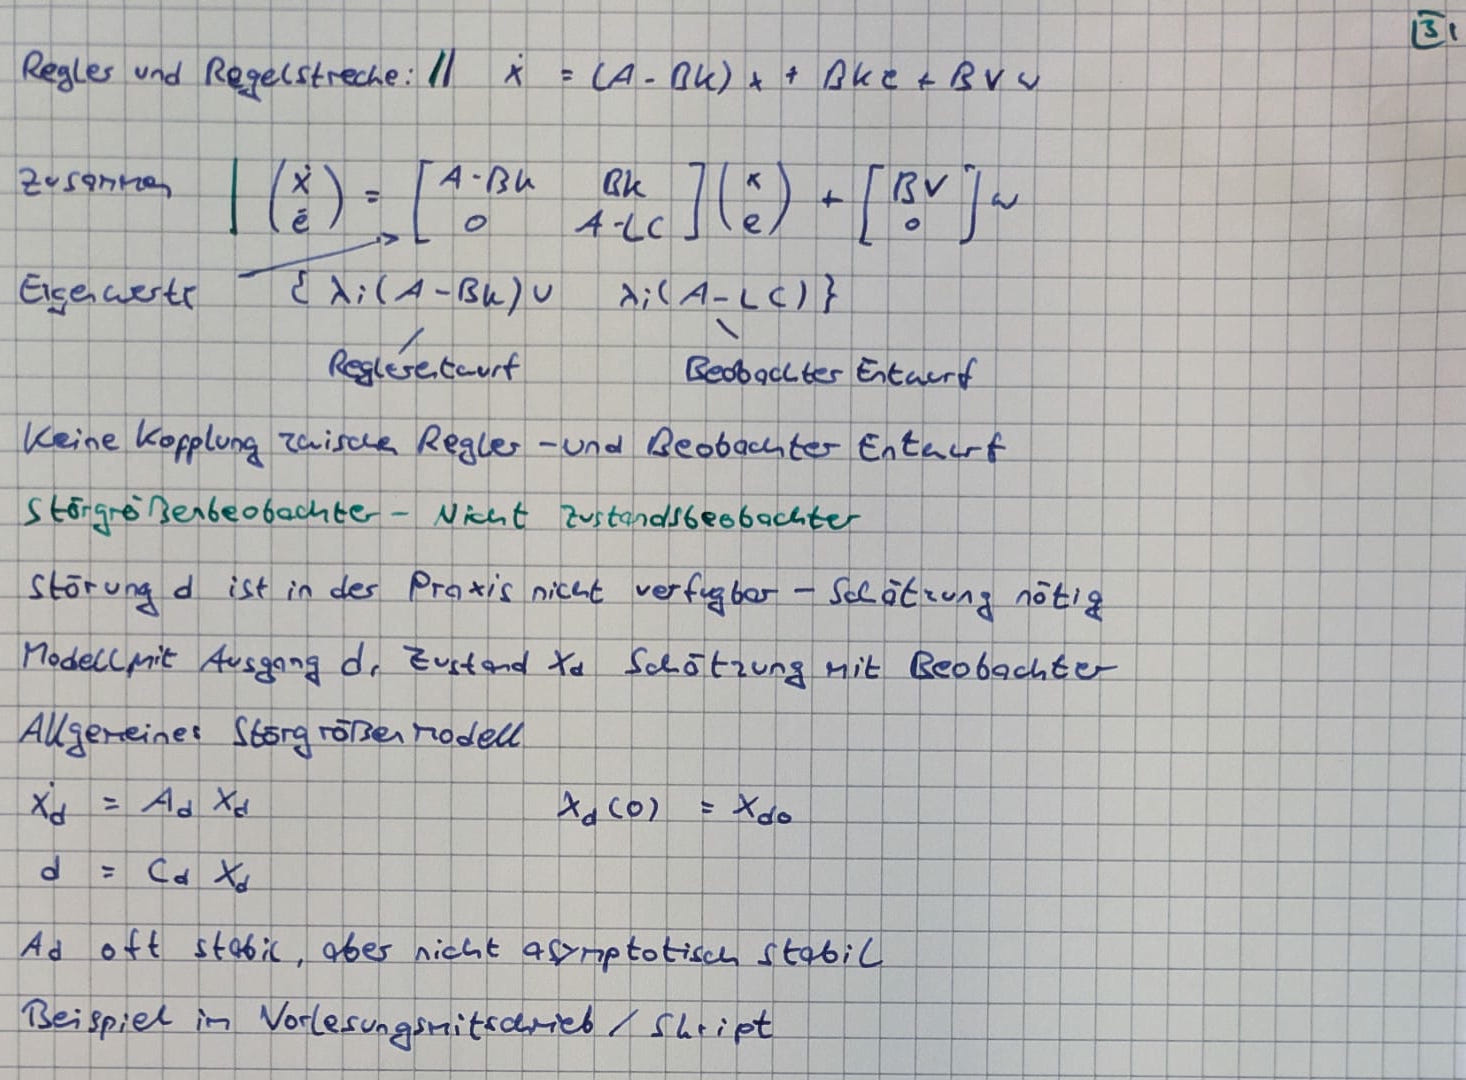 31
Regler und Regelstrecke: || ẋ = (A - BK) x + BK e + B V w
Zusammen | (ẋ ė) = [A-BK BK 0 A-LC] (x e) + [BV 0] w
Eigenwerte { λi(A-BK) ∪ λi(A-LC) }
Reglerentwurf Beobachter Entwurf
Keine Kopplung zwischen Regler -und Beobachter Entwurf
Störgrößenbeobachter - Nicht Zustandsbeobachter
Störung d ist in der Praxis nicht verfügbar - Schätzung nötig
Modell mit Ausgang d, Zustand xd Schätzung mit Beobachter
Allgemeines Störgrößenmodell
ẋd = Ad xd xd(0) = xd0
d = Cd xd
Ad oft stabil, aber nicht asymptotisch stabil
Beispiel im Vorlesungsmitschrieb / Skript